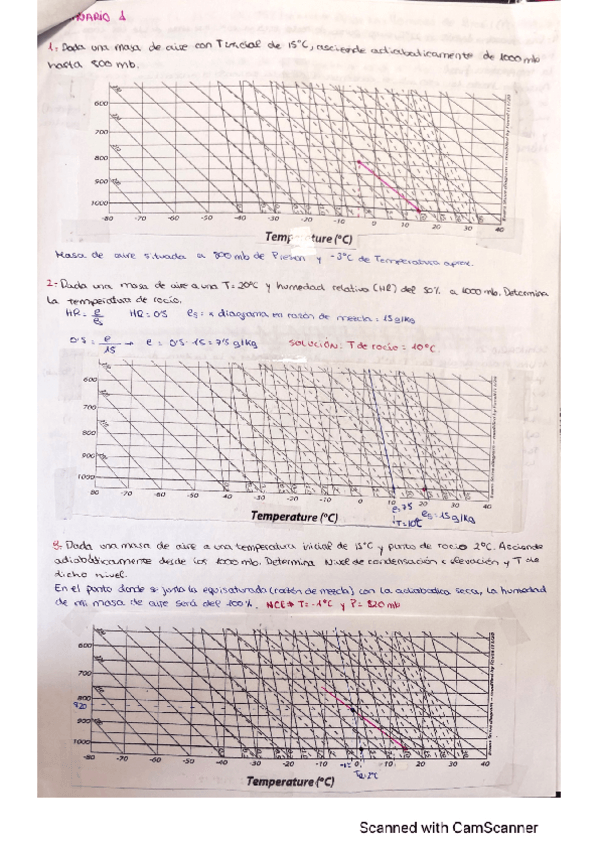 1.- Dada una masa de aire con T inicial de 15°C, asciende adiabaticamente de 1000 mb
hasta 800 mb.
600
700
800
900
1000
-80 -70 -60 -50 -40 -30 -20 -10 0 10 20 30 40
Temperature (°C)
Masa de aire situada a 800 mb de Presion y -3°C de Temperatura aprox.
2.- Dada una masa de aire a una T = 20°C y humedad relativa (HR) del 50% a 1000 mb. Determina
la temperatura de rocio.
HR = e/es HR = 0'5 es = x diagrama en razón de mezcla = 15 g/kg
0'5 = e/15 → e = 0'5 · 15 = 7'5 g/kg SOLUCIÓN: T de rocio = 10°C.
600
700
800
900
1000
-80 -70 -60 -50 -40 -30 -20 -10 0 10 20 30 40
Temperature (°C)
es = 15 g/kg
T = 10°C
3.- Dada una masa de aire a una temperatura inicial de 15°C y punto de rocio 2°C. Asciende
adiabáticamente desde los 1000 mb. Determina Nivel de condensación x elevación y T de
dicho nivel.
En el punto donde se junta la equisaturada (razón de mezcla) con la adiabatica seca, la humedad
de mi masa de aire será del 100%. NCE → T = -1°C y P = 820 mb
600
700
800
820
900
1000
-70 -60 -50 -40 -30 -20 -10 -1° 0 10 20 30 40
Temperature (°C)
Scanned with CamScanner